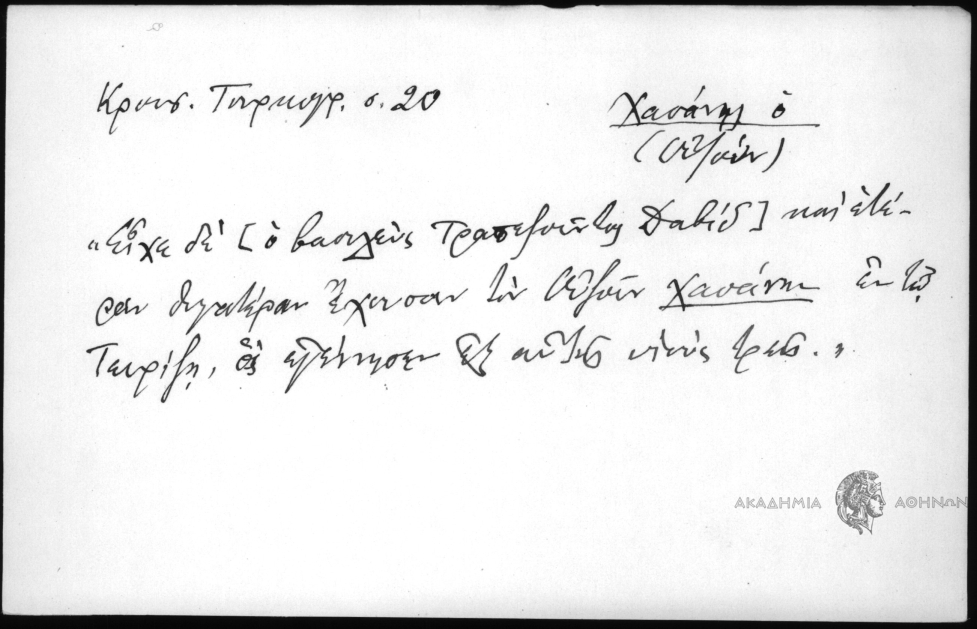 Κρουσ. Τουρκογρ. σ. 20
Χασάνης ὁ
(Οὐζοῦν)
"Εἶχε δὲ [ὁ βασιλεὺς Τραπεζοῦντος Δαβίδ] καὶ ἑτέ-
ραν θυγατέραν ἔχουσαν τὸν Οὐζοῦν Χασάνην ἐν τῷ
Ταυρίζη, ὃς ἐγέννησεν ἐξ αὐτῆς υἱοὺς τρεῖς."
ΑΚΑΔΗΜΙΑ ΑΘΗΝΩΝ